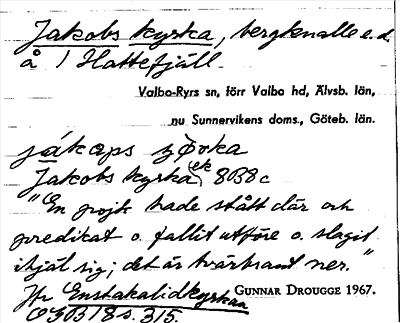 Jakobs kyrka, bergknalle e.d.
å 1 Hattefjäll.
Valbo-Ryrs sn, förr Valbo hd, Älvsb. län,
nu Sunnervikens doms., Göteb. län.
jákaps
Jakobs kyrka ek 8B8c
"En pojk hade stått där och
predikat o. fallit utföre o. slagit
ihjäl sig; det är tvärbrant ner."
Jfr Enstakalidkyrkan
GUNNAR DROUGGE 1967.
OGB 18 s. 315.